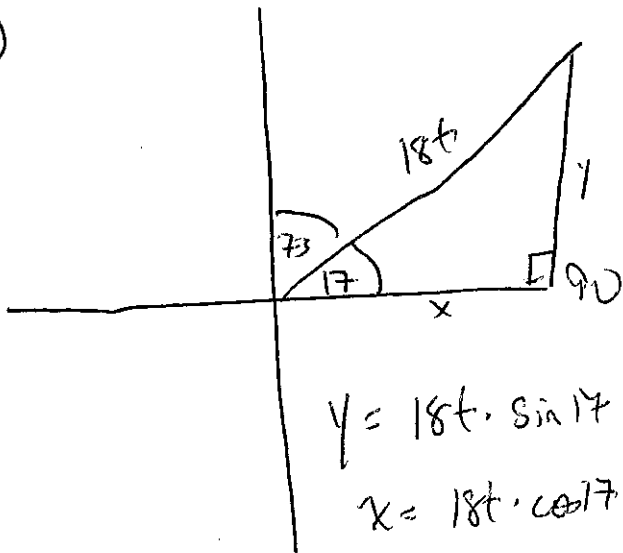 )
18t
y
73
17
x
90
y = 18t. sin 17
x = 18t. cos 17